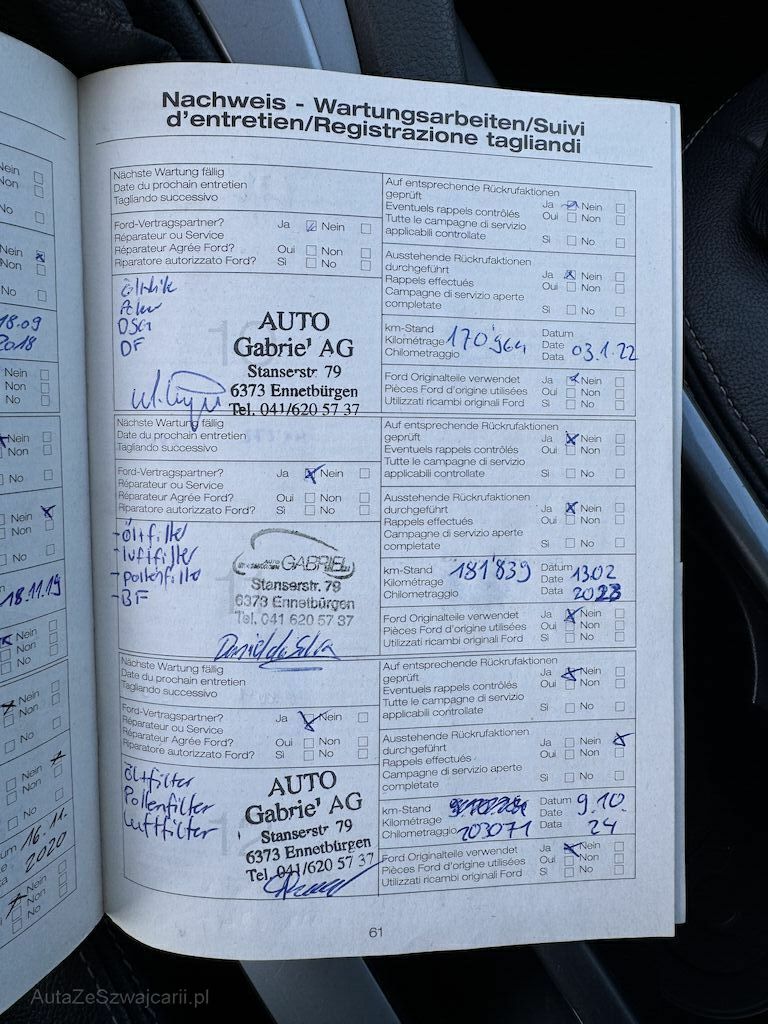 Nachweis - Wartungsarbeiten/Suivi
d'entretien/Registrazione tagliandi
Nächste Wartung fällig
Date du prochain entretien
Tagliando successivo
Ford-Vertragspartner? Ja Nein
Réparateur ou Service
Réparateur Agrée Ford? Oui Non
Riparatore autorizzato Ford? Sì No
DF
AUTO
Gabrie' AG
Stanserstr. 79
6373 Ennetbürgen
Tel. 041/620 57 37
Auf entsprechende Rückrufaktionen
geprüft Ja Nein
Eventuels rappels contrôlés Oui Non
Tutte le campagne di servizio
applicabili controllate Sì No
Ausstehende Rückrufaktionen
durchgeführt Ja Nein
Rappels effectués Oui Non
Campagne di servizio aperte
completate Sì No
km-Stand Datum
Kilométrage Date
Chilometraggio Data 03.1.22
Ford Originalteile verwendet Ja Nein
Pièces Ford d'origine utilisées Oui Non
Utilizzati ricambi originali Ford Sì No
Nächste Wartung fällig
Date du prochain entretien
Tagliando successivo
Ford-Vertragspartner? Ja Nein
Réparateur ou Service
Réparateur Agrée Ford? Oui Non
Riparatore autorizzato Ford? Sì No
-ölfilter
-luftfilter
-pollenfilter
-BF
AUTO GABRIEL
Stanserstr. 79
6373 Ennetbürgen
Tel. 041 620 57 37
Auf entsprechende Rückrufaktionen
geprüft Ja Nein
Eventuels rappels contrôlés Oui Non
Tutte le campagne di servizio
applicabili controllate Sì No
Ausstehende Rückrufaktionen
durchgeführt Ja Nein
Rappels effectués Oui Non
Campagne di servizio aperte
completate Sì No
km-Stand 181'839 Datum
Kilométrage Date 13.02
Chilometraggio Data 2023
Ford Originalteile verwendet Ja Nein
Pièces Ford d'origine utilisées Oui Non
Utilizzati ricambi originali Ford Sì No
Nächste Wartung fällig
Date du prochain entretien
Tagliando successivo
Ford-Vertragspartner? Ja Nein
Réparateur ou Service
Réparateur Agrée Ford? Oui Non
Riparatore autorizzato Ford? Sì No
Ölfilter
Pollenfilter
Luftfilter
AUTO
Gabrie' AG
Stanserstr. 79
6373 Ennetbürgen
Tel. 041/620 57 37
Auf entsprechende Rückrufaktionen
geprüft Ja Nein
Eventuels rappels contrôlés Oui Non
Tutte le campagne di servizio
applicabili controllate Sì No
Ausstehende Rückrufaktionen
durchgeführt Ja Nein
Rappels effectués Oui Non
Campagne di servizio aperte
completate Sì No
km-Stand Datum 9.10.
Kilométrage Date
Chilometraggio 203071 Data 24
Ford Originalteile verwendet Ja Nein
Pièces Ford d'origine utilisées Oui Non
Utilizzati ricambi originali Ford Sì No
61
Nein
Non
No
Nein
Non
No
18.09
2018
Nein
Non
No
Nein
Non
No
Nein
Non
No
18.11.19
Nein
Non
No
Nein
Non
No
Nein
Non
No
16.11.
2020
Nein
Non
No
AutaZeSzwajcarii.pl